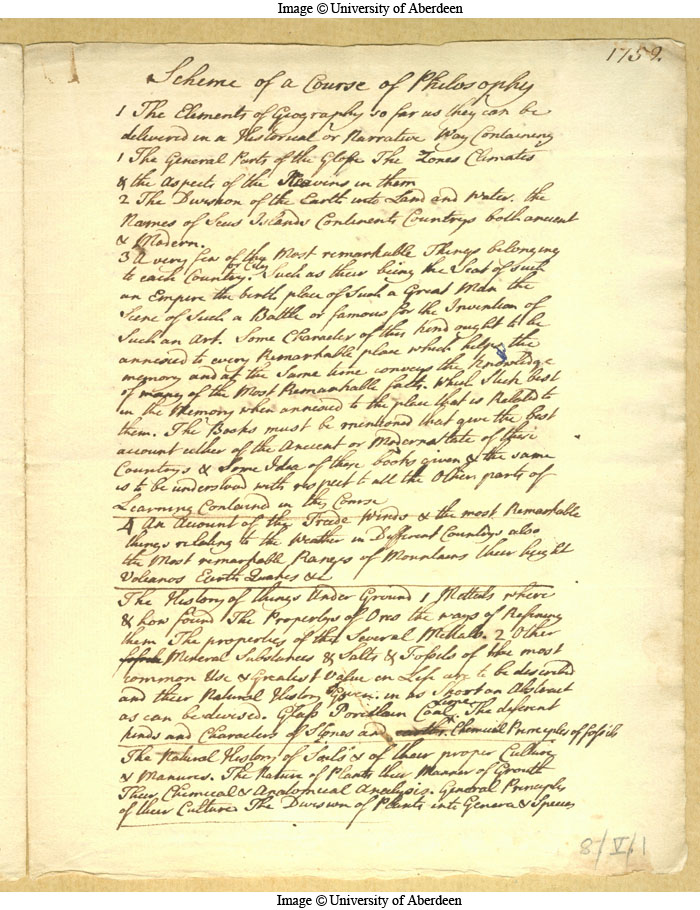 Image © University of Aberdeen
1752.
Scheme of a Course of Philosophy
1 The Elements of Geography so far as they can be
delivered in a Historical or Narrative Way Containing
1 The General Parts of the Globe The Zones Climates
& the Aspects of the Heavens in them
2 The Division of the Earth into Land and Water. the
Names of Seas Islands Continents Countrys both ancient
& Modern.
3 A very few of the Most remarkable Things belonging
to each Country or City. Such as their being the Seat of such
an Empire the birth place of Such a Great Man the
Scene of Such a Battle or famous for the Invention of
Such an Art. Some Character of this kind ought to be
annexed to every Remarkable place which helps the
memory and at the Same time conveys the Knowledge
of many of the Most Remarkable facts. Which Stick best
in the Memory when annexed to the place that is Related to
them. The Books must be mentioned that give the best
account either of the Ancient or Modern state of these
Countrys & Some Idea of these books given & the same
is to be understood with respect to all the Other parts of
Learning Contained in this Course
4 An Account of the Trade Winds & the most Remarkable
things relating to the Weather in Different Countrys also
the Most remarkable Ranges of Mountains their hight
Volcanos Earth Quakes &c
The History of things Under Ground 1 Mettals where
& how found The Propertys of Ores the ways of Refining
them The properties of the Several Mettals. 2 Other
Mineral Substances & Salts & Fossils of the most
common Use & Greatest Value in Life are to be described
and their Natural History Given in as Short an Abstract
as can be devised. Glass Porcelain Coal Lime The different
kinds and Characters of Stones and Chemical Principles of fossils
The Natural History of Soils & of their proper Culture
& Manures. The Nature of Plants their Manner of Growth
Their Chemical & Anatomical Analysis. General Principles
of their Culture The Division of Plants into Genera & Species
8/V/1
Image © University of Aberdeen